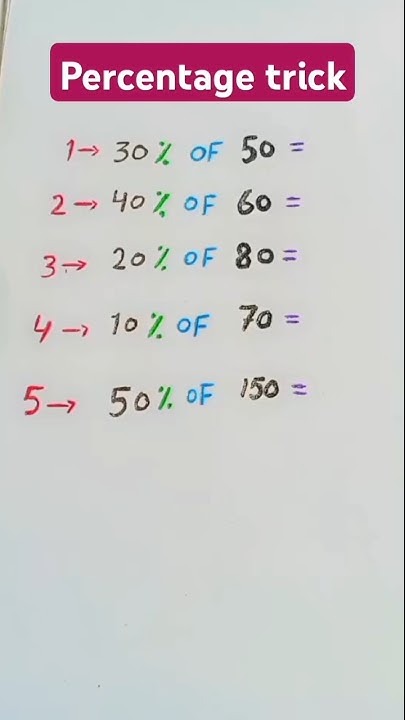 Percentage trick
1→ 30% OF 50 =
2→ 40% OF 60 =
3→ 20% OF 80 =
4→ 10% OF 70 =
5→ 50% OF 150 =